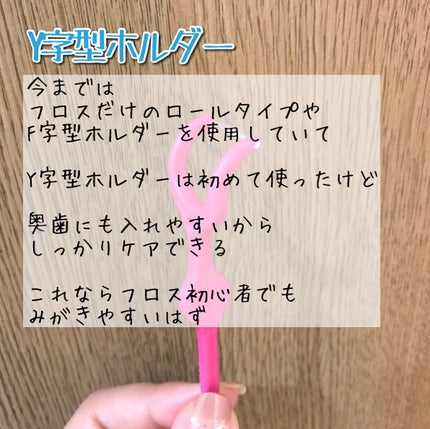 Y字型ホルダー
今までは
フロスだけのロールタイプや
F字型ホルダーを使用していて
Y字型ホルダーは初めて使ったけど
奥歯にも入れやすいから
しっかりケアできる
これならフロス初心者でも
みがきやすいはず